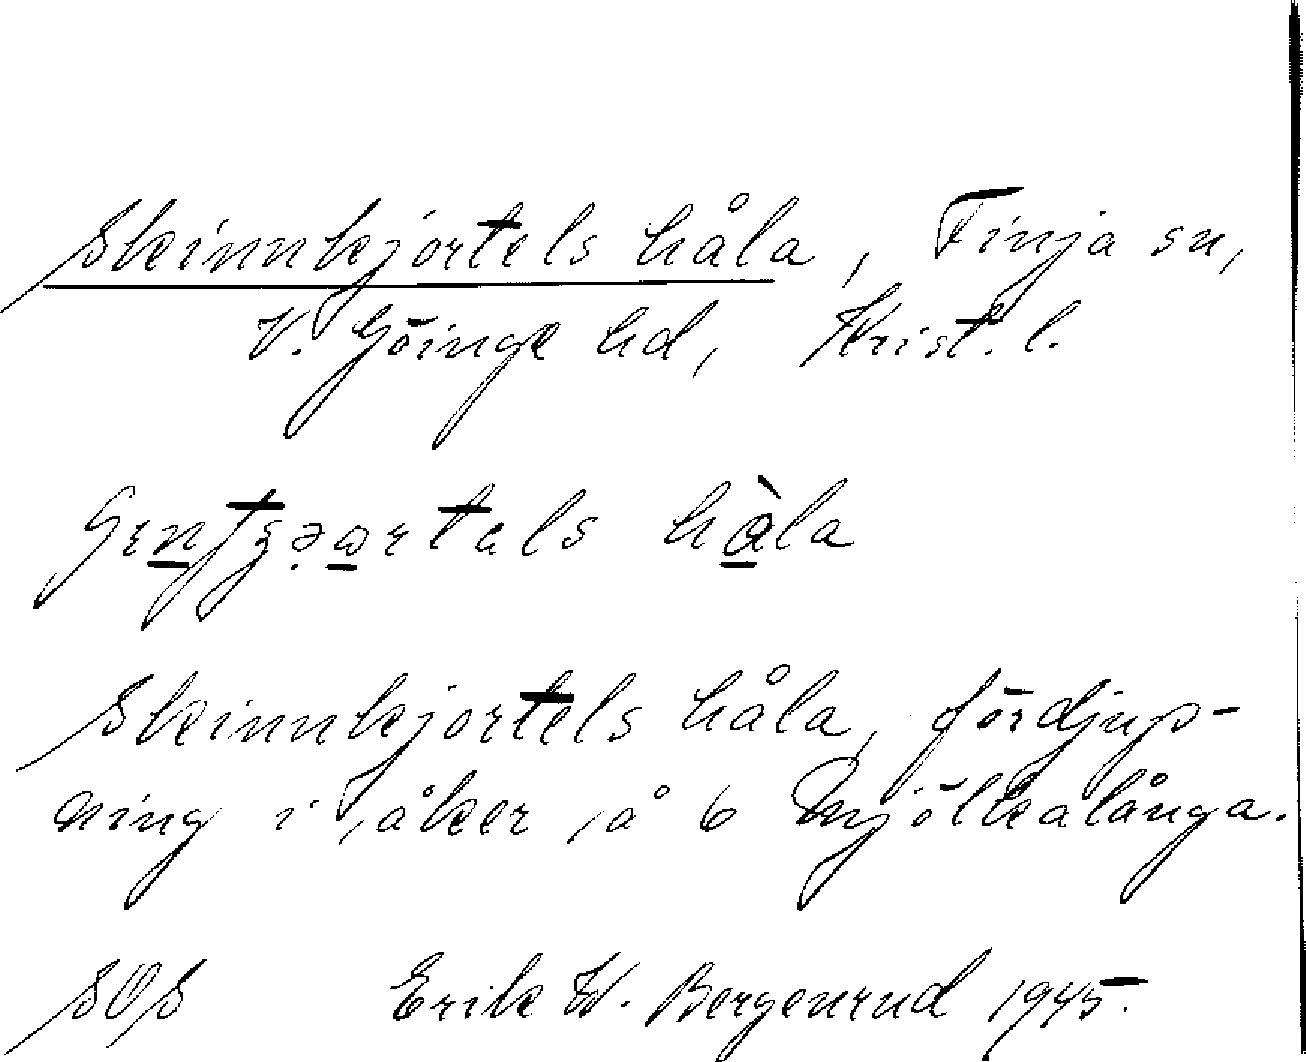 Skinnkjortels håla, Finja sn,
V. Göinge hd, Krist. l.
håla
Skinnkjortels håla, fördjup-
ning i åker, å 6 Mjölkalånga.
SOS Erik W. Bergenrud 1945.